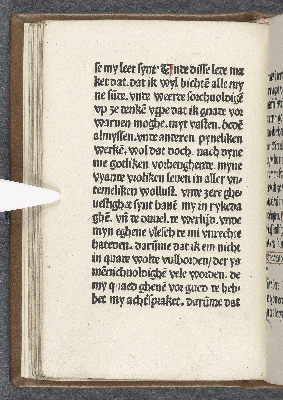 se my leet synt Unde disse lere ma
ket dat. dat ik wyl bichtē alle my
ne sūde. vnde weerte sorchuoldighē
vp ze denkē vppe dat ik gnade vor
waruen moghe. myt vasten. bedē
almyssen. vnde anderen pyneliken
werkē. wol dat doch. nach dyne
me gotliken vorhenghente. myne
vyante vroliken leuen in aller vn
temeliken wollust. vnde zere ghe
uestighet synt bauē my in rykeda
ghē. vn̄ te duuel. te werlyd. vnde
myn eghene vlesch te mi vnrechte
hateden. darūme dat ik em nicht
in quate wolte vulborden. der ys
mēnichuoldighē vele worden. de
my quaed gheuē vor gued. te heb
bet my achtersprakēt. darūme dat